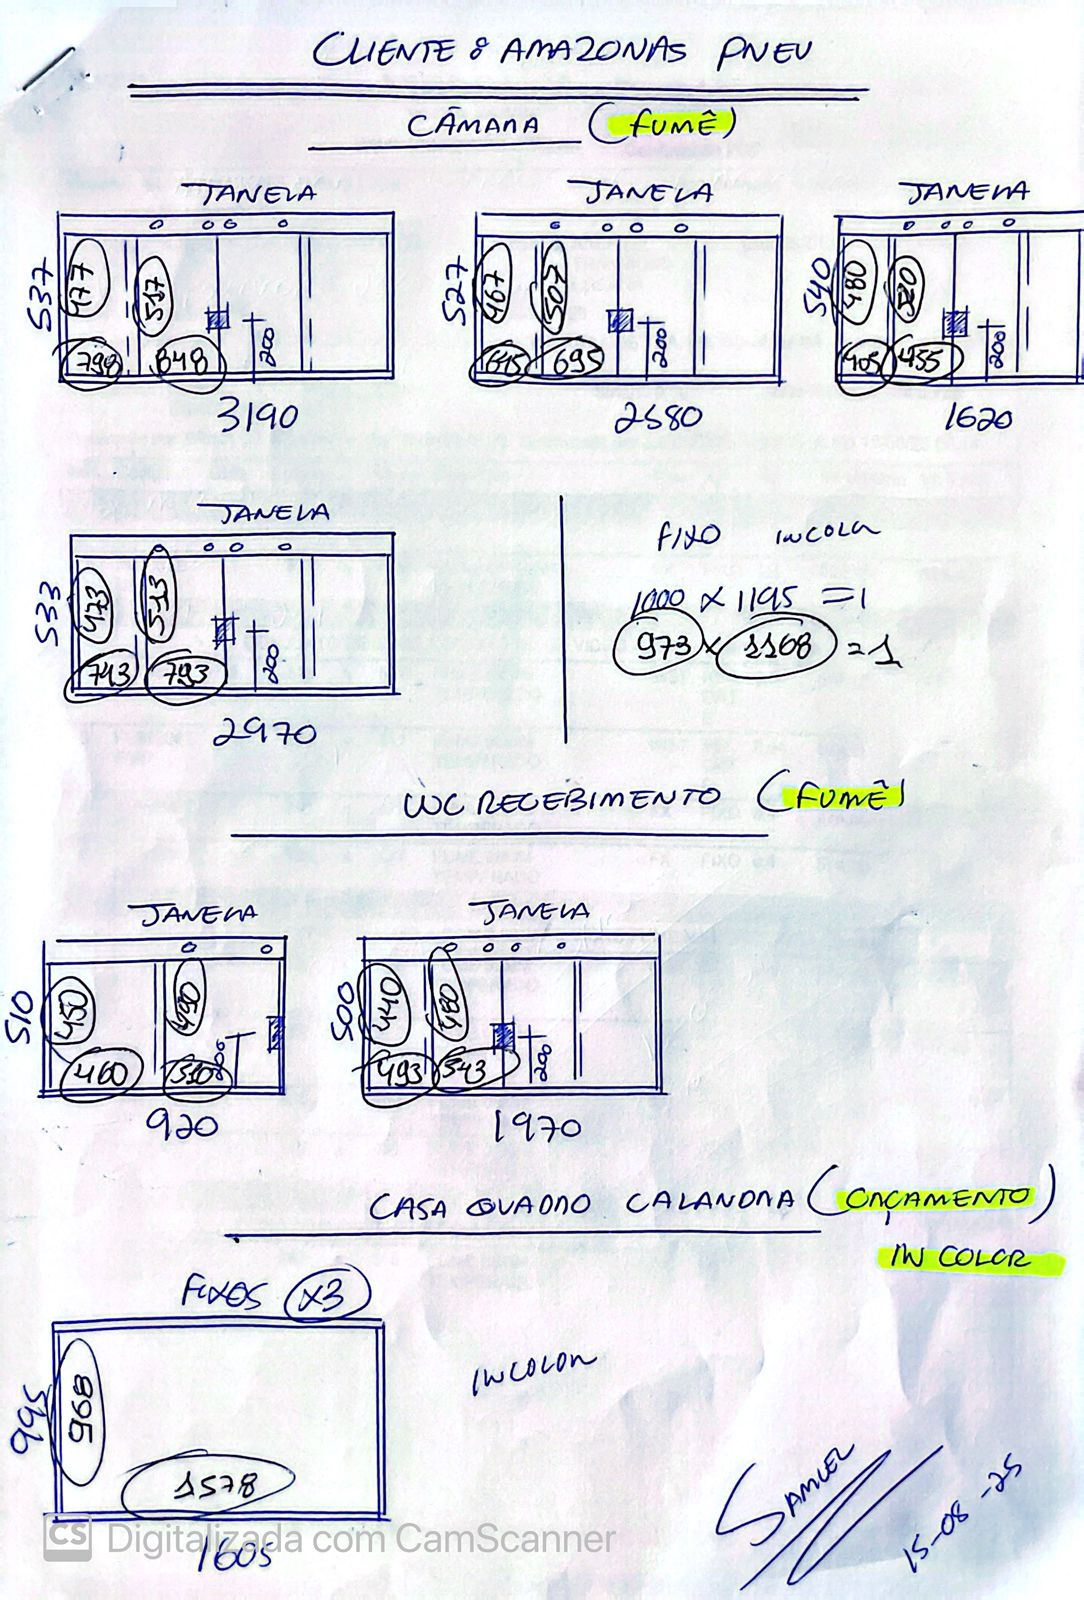 CLIENTE: AMAZONAS PNEU
CÂMARA (FUMÊ)
JANELA JANELA JANELA
537 477 517 798 848 200 3190
527 467 507 645 695 200 2580
540 480 520 405 455 200 1620
JANELA
533 473 513 743 793 200 2970
FIXO INCOLOR
1000 x 1195 = 1
973 x 1168 = 1
WC RECEBIMENTO (FUMÊ)
JANELA JANELA
510 450 490 460 510 200 920
500 440 480 493 543 200 1970
CASA QUADRO CALANDRA (ORÇAMENTO)
INCOLOR
FIXOS x3
995 968 1578 1605
INCOLOR
SAMUEL
15-08-25
CS Digitalizada com CamScanner